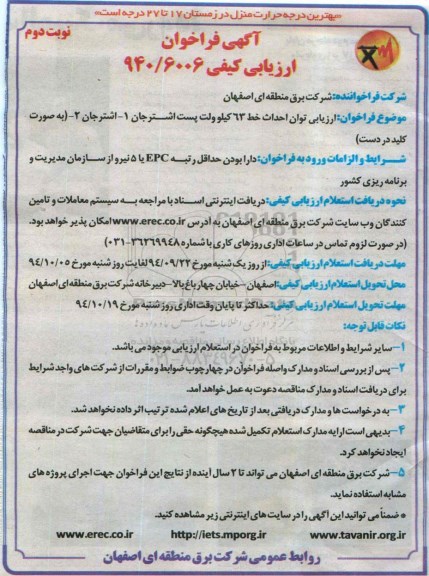 «بهترین درجه حرارت منزل در زمستان ۱۷ تا ۲۷ درجه است»
نوبت دوم
آگهی فراخوان
ارزیابی کیفی ۹۴۰/۶۰۰۶
شرکت فراخواننده: شرکت برق منطقه ای اصفهان
موضوع فراخوان: ارزیابی توان احداث خط ۶۳ کیلو ولت پست اشترجان ۱- اشترجان ۲- (به صورت
کلید در دست)
شرایط و الزامات ورود به فراخوان: دارا بودن حداقل رتبه EPC یا ۵ نیرو از سازمان مدیریت و
برنامه ریزی کشور
نحوه دریافت استعلام ارزیابی کیفی: دریافت اینترنتی اسناد با مراجعه به سیستم معاملات و تامین
کنندگان وب سایت شرکت برق منطقه ای اصفهان به آدرس www.erec.co.ir امکان پذیر خواهد بود.
(در صورت لزوم تماس در ساعات اداری روزهای کاری با شماره ۳۶۲۶۹۹۴۸-۰۳۱)
مهلت دریافت استعلام ارزیابی کیفی: از روز یک شنبه مورخ ۹۴/۰۹/۲۲ لغایت روز شنبه مورخ ۹۴/۱۰/۰۵
محل تحویل استعلام ارزیابی کیفی: اصفهان - خیابان چهارباغ بالا - دبیرخانه شرکت برق منطقه ای اصفهان
مهلت تحویل استعلام ارزیابی کیفی: حداکثر تا پایان وقت اداری روز شنبه مورخ ۹۴/۱۰/۱۹
نکات قابل توجه:
۱- سایر شرایط و اطلاعات مربوط به فراخوان در استعلام ارزیابی موجود می باشد.
۲- پس از بررسی اسناد و مدارک واصله فراخوان در چهارچوب ضوابط و مقررات از شرکت های واجد شرایط
برای دریافت اسناد و مدارک مناقصه دعوت به عمل خواهد آمد.
۳- به درخواست ها و مدارک دریافتی بعد از تاریخ های اعلام شده ترتیب اثر داده نخواهد شد.
۴- بدیهی است ارایه مدارک استعلام تکمیل شده هیچگونه حقی را برای متقاضیان جهت شرکت در مناقصه
ایجاد نخواهد کرد.
۵- شرکت برق منطقه ای اصفهان می تواند تا ۲ سال آینده از نتایج این فراخوان جهت اجرای پروژه های
مشابه استفاده نماید.
* ضمناً می توانید این آگهی را در سایت های اینترنتی زیر مشاهده کنید.
www.erec.co.ir http://iets.mporg.ir www.tavanir.org.ir
روابط عمومی شرکت برق منطقه ای اصفهان